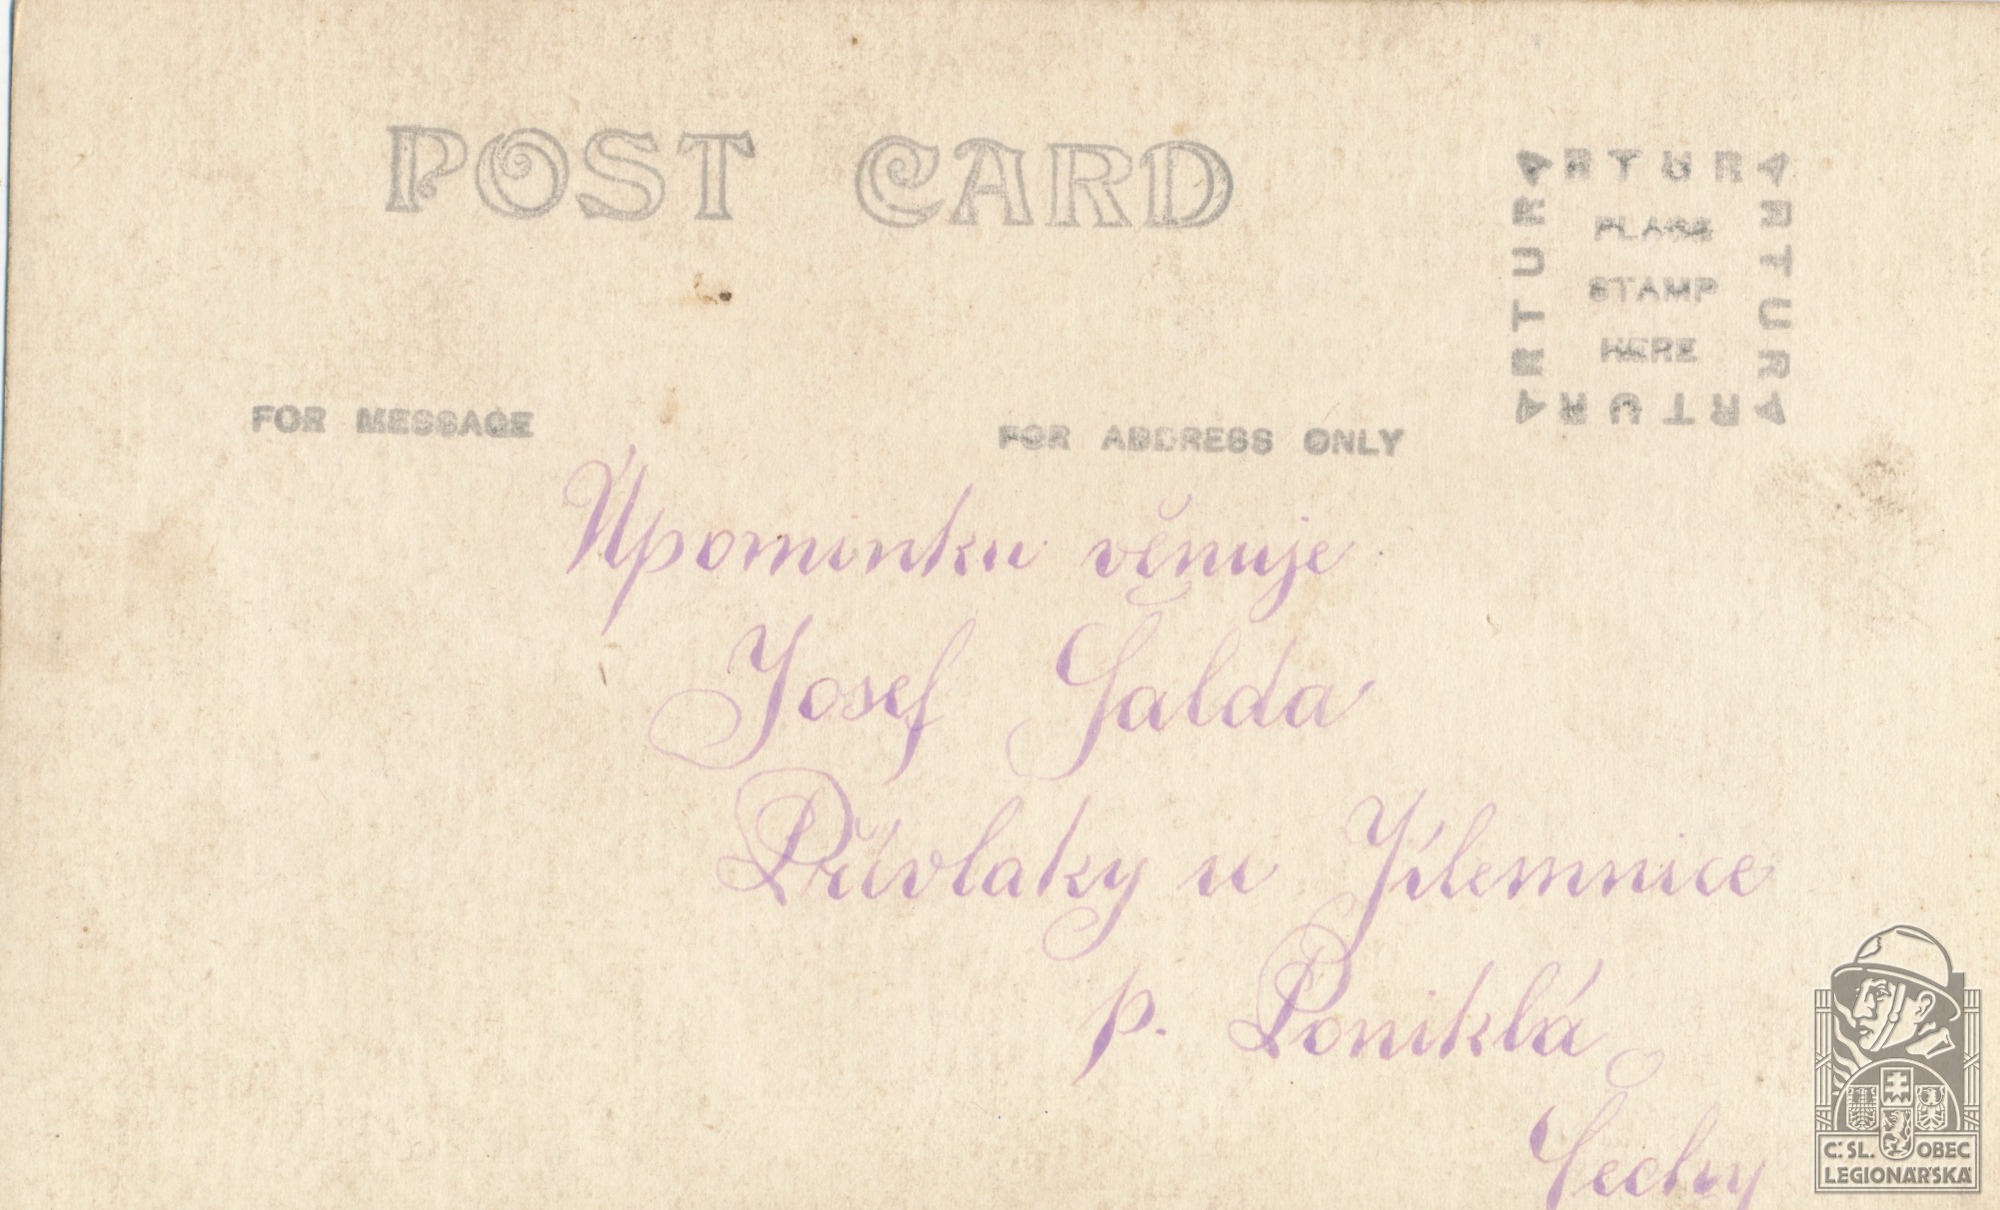 POST CARD
ARTURARTURARTURARTUR
PLACE
STAMP
HERE
FOR MESSAGE
FOR ADDRESS ONLY
Upomínku věnuje
Josef Šalda
Přívlaky u Jilemnice
p. Poniklá
Čechy
Č.SL. OBEC
LEGIONÁŘSKÁ